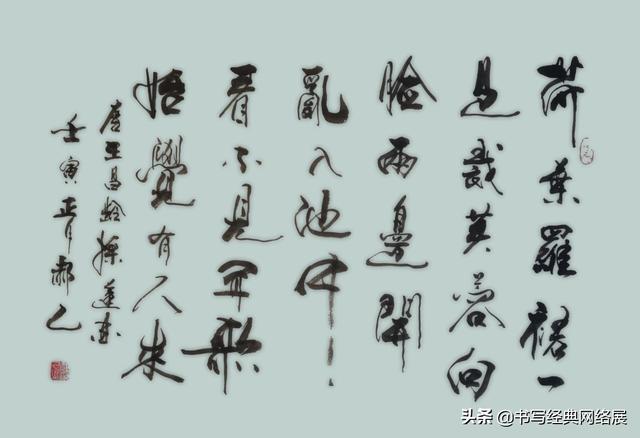 荷葉羅裙一
色裁芙蓉向
臉兩邊開
亂入池中
看不見聞歌
始覺有人來
唐王昌齡採蓮曲
壬寅正月郝
头条 @书写经典网络展